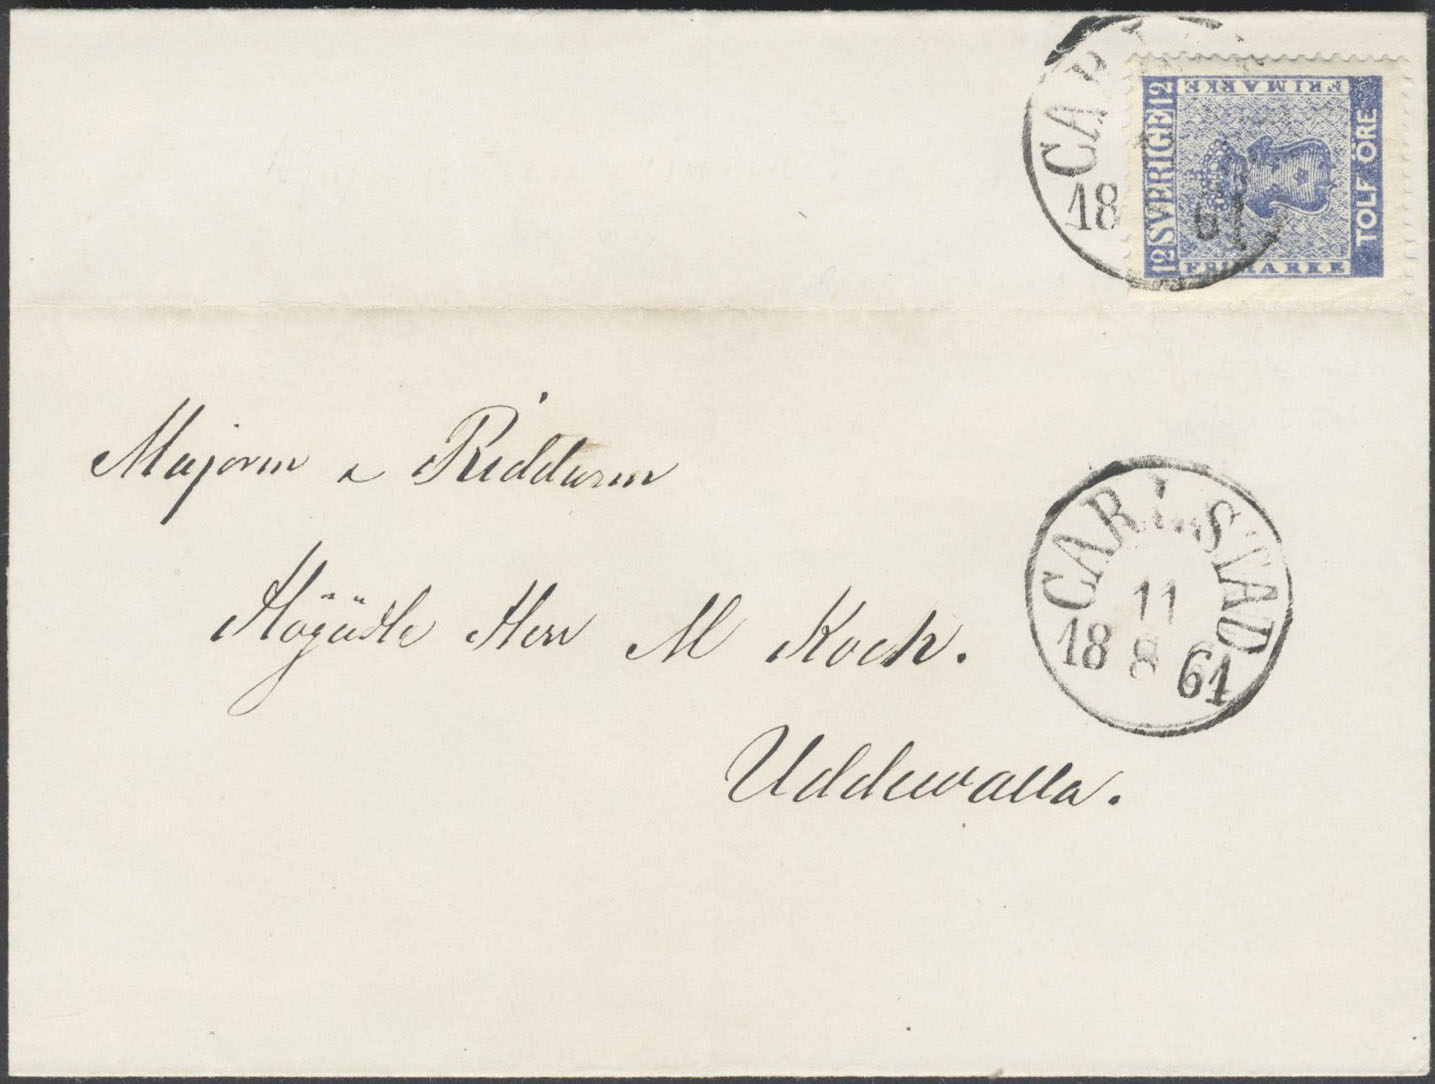 CAR
18 61
12 SVERIGE 12
FRIMARKE
FRIMARKE
TOLF ÖRE
Majoren Riddaren
Högädle Herr M Koch.
Uddewalla.
CARLSTAD
11
18 8 61